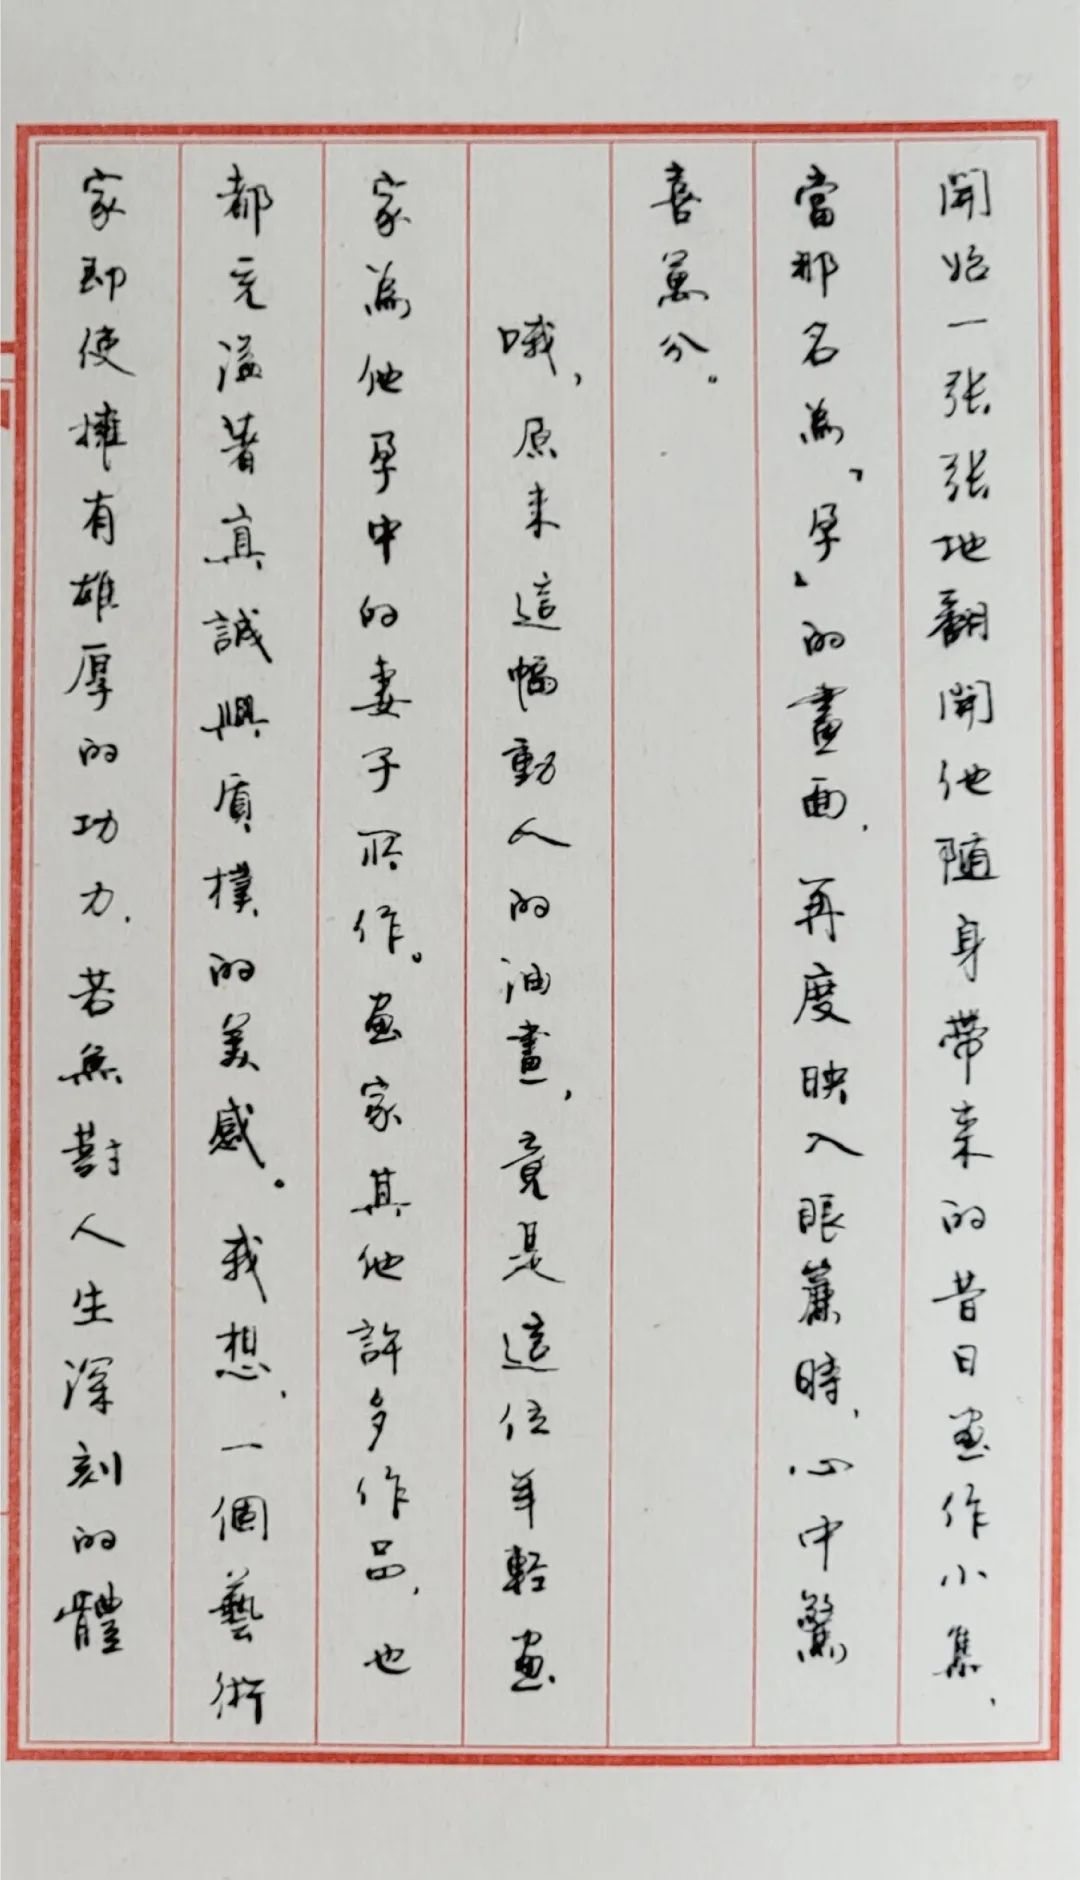 開始一张张地翻開他随身带来的昔日画作小集，
當那名為「孕」的畫面，再度映入眼簾時，心中驚
喜萬分。
哦，原来這幅動人的油畫，竟是這位年輕画
家為他孕中的妻子所作。画家其他許多作品，也
都充溢著真誠與质樸的美感。我想，一個藝術
家即使擁有雄厚的功力，若無對人生深刻的體